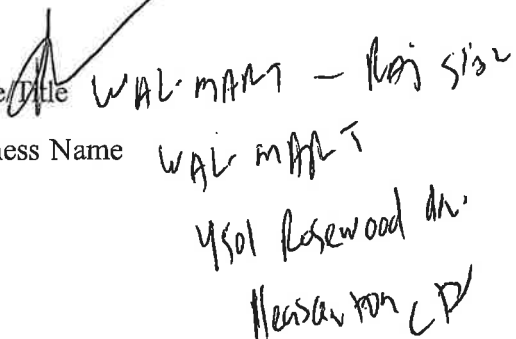 e/Title WAL-MART - Raj
ness Name WAL-MART
4501 Rosewood Dr.
Pleasanton CA